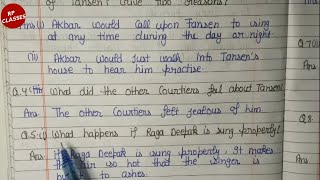 RP
CLASSES
of Tansen? Give Two Reasons?
Ans (i) Akbar would call upon Tansen to sing
at any time during the day or night.
(ii) Akbar would just walk into Tansen's
house to hear him practise.
Q.4 What did the other Courtiers feel about Tansen
Ans The other Courtiers felt jealous of him
Q.5 (i) What happens if Raga Deepak is sung properly?
Ans If Raga Deepak is sung properly, It makes
so hot that the singer is
to ashes.
Q.7(i)
Ans
Q.8
Ans